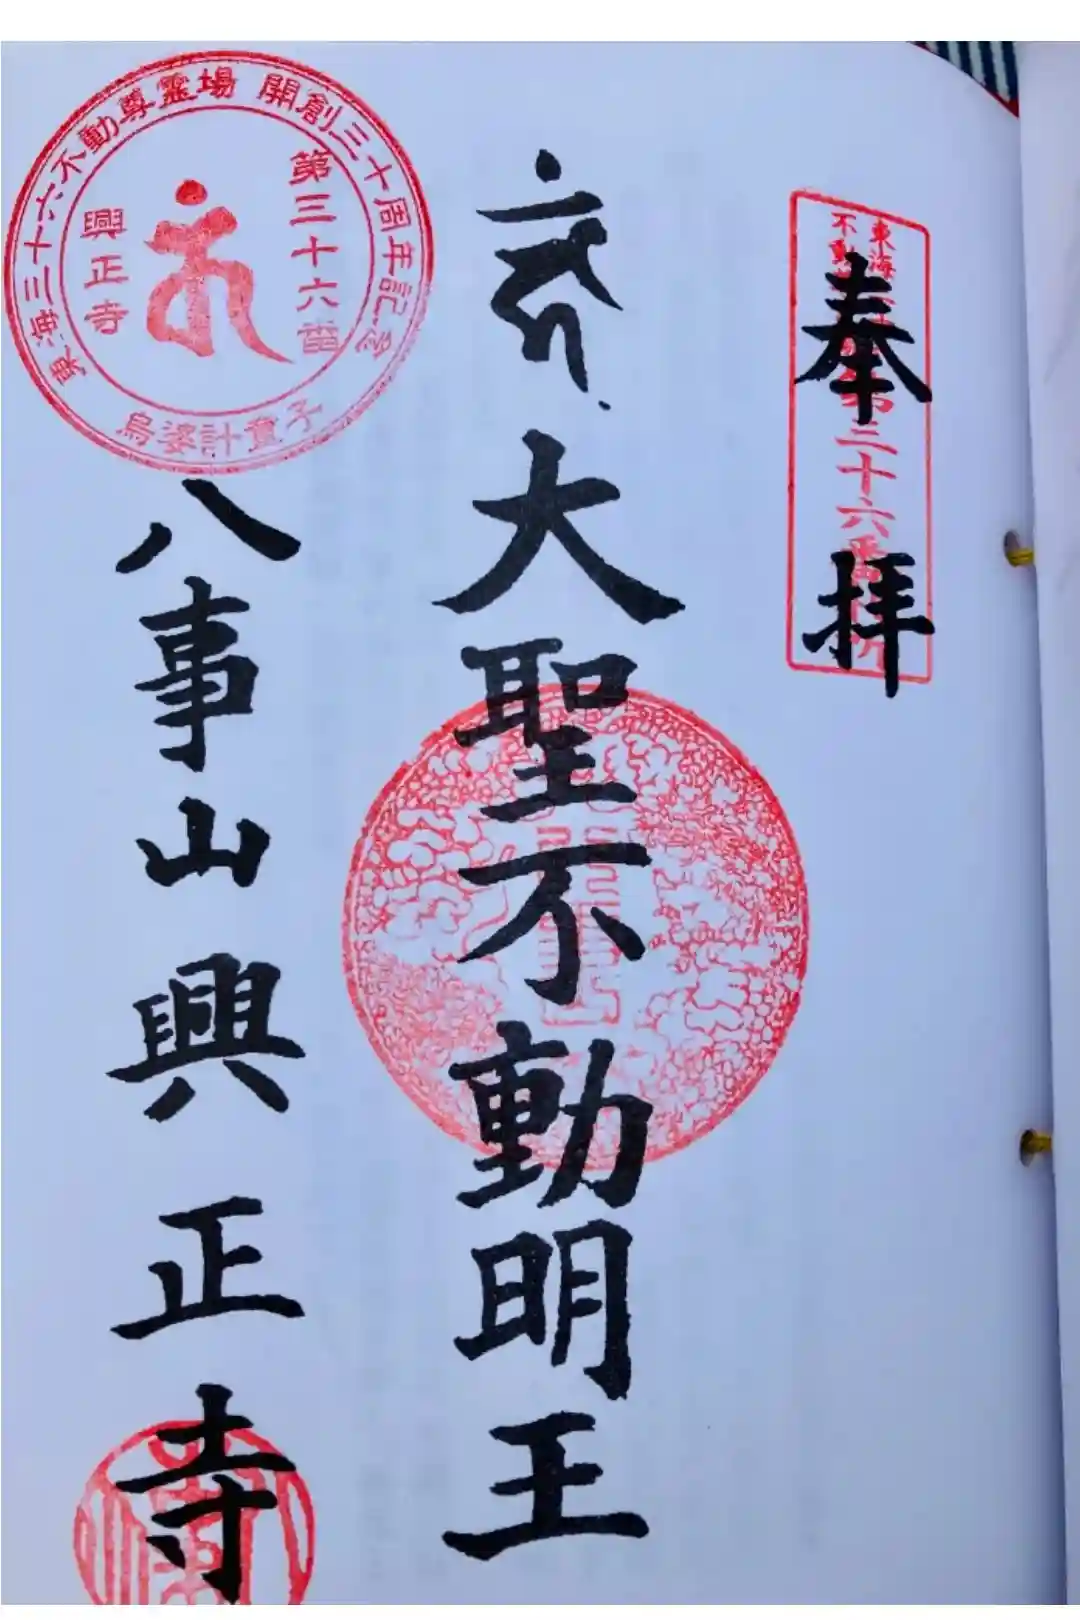 奉拝
東海
不動
第三十六番
大聖不動明王
八事山興正寺
東海三十六不動尊霊場 開創三十周年記念
第三十六番
興正寺
烏婆計童子